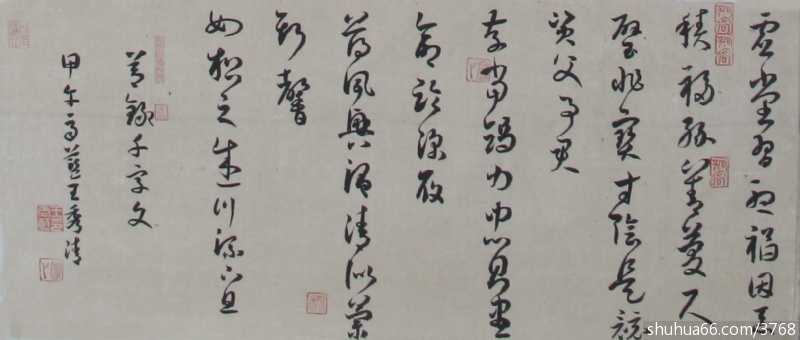 虚堂習聽禍因惡
積福緣善慶尺
璧非寶寸陰是競
資父事君
孝當竭力忠則盡
命臨深履
薄夙興温清似蘭
斯馨
如松之盛川流不息
節錄千字文
甲午王秀清
shuhua66.com/3768